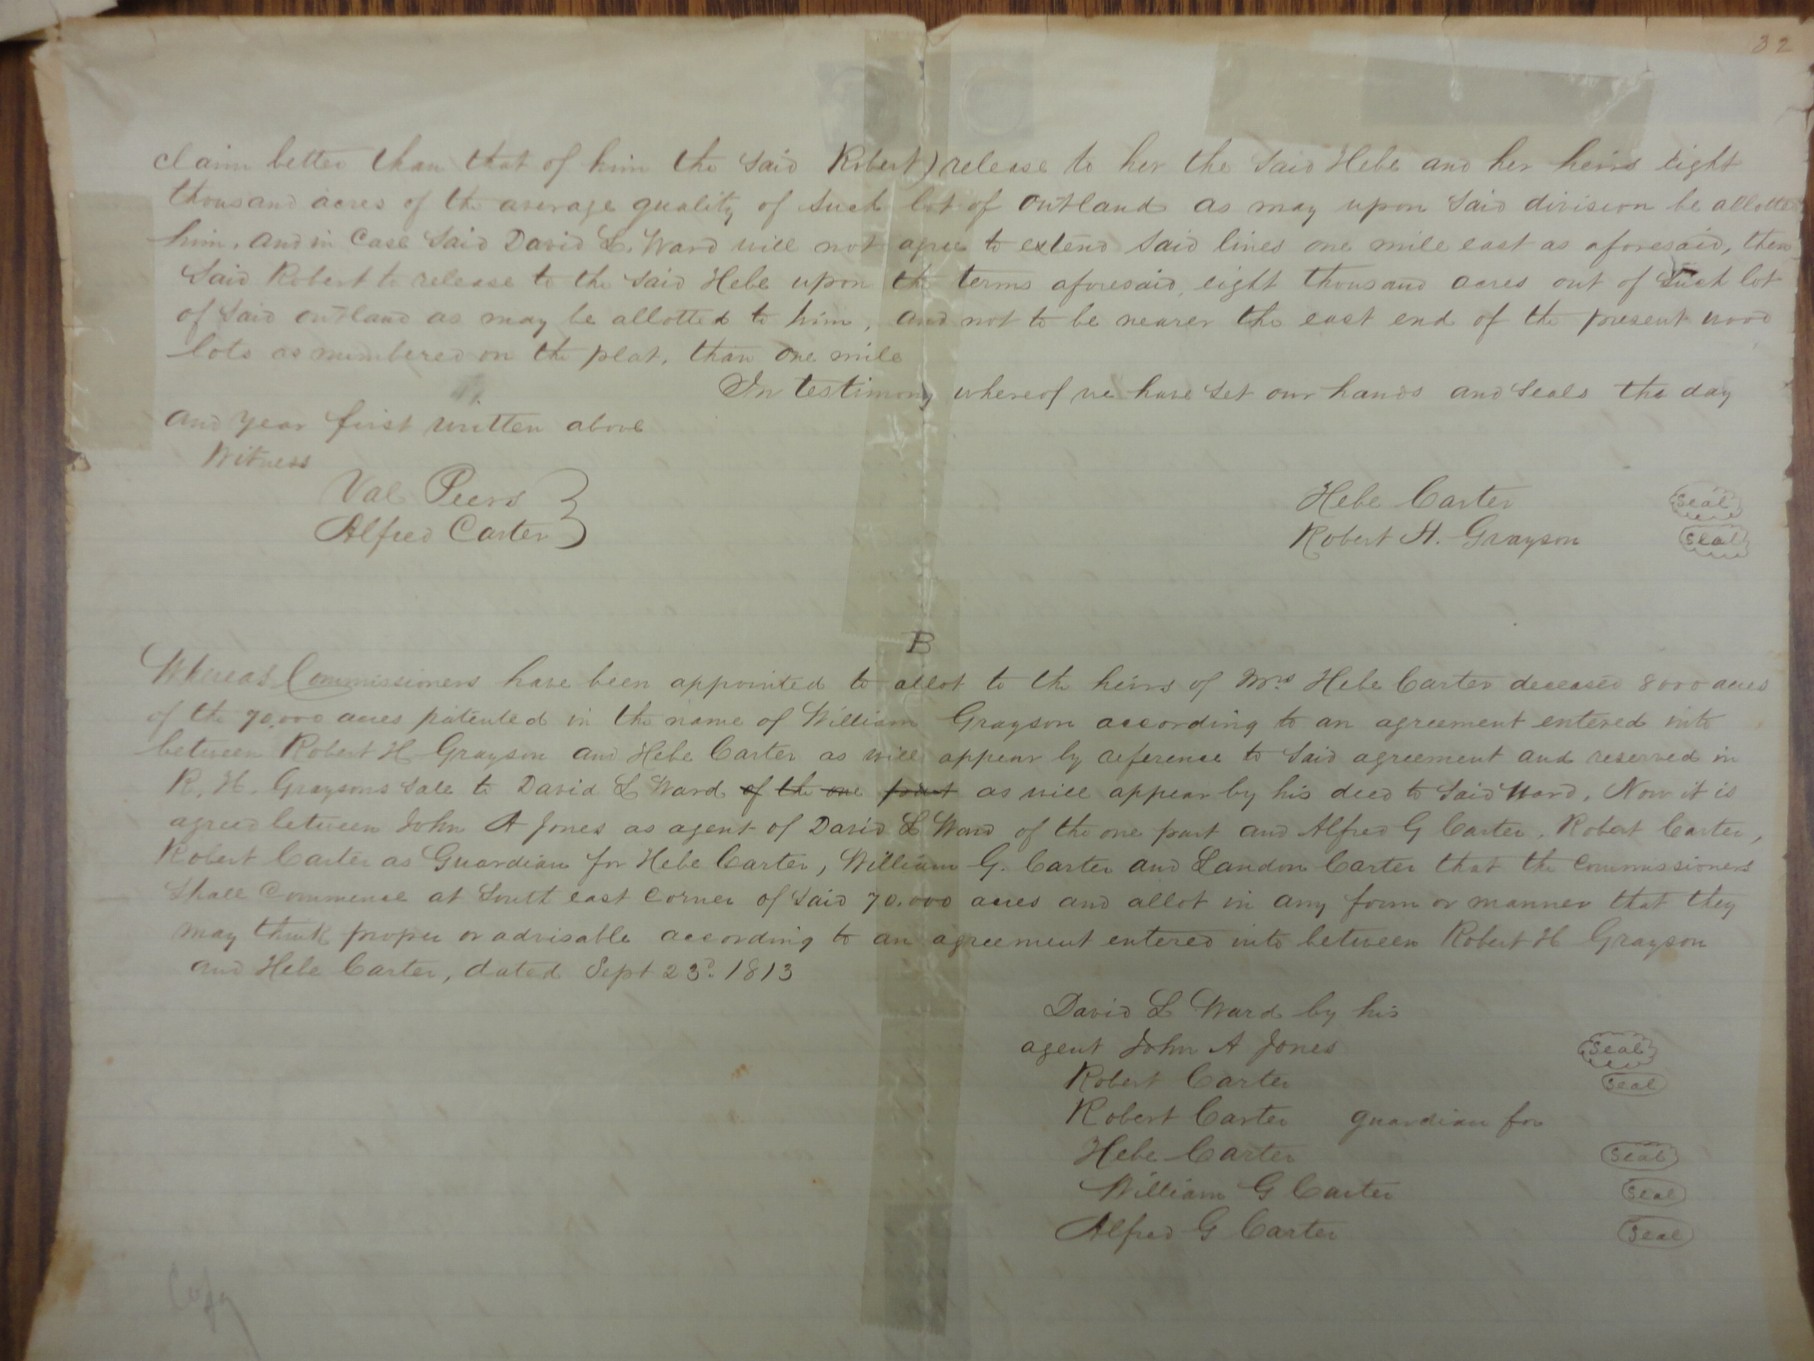 32
claim better than that of him the said Robert) release to her the said Hebe and her heirs eight
thousand acres of the average quality of such lot of outland as may upon said division be allotted
him, and in case said David L. Ward will not agree to extend said lines one mile east as aforesaid, then
said Robert to release to the said Hebe upon the terms aforesaid, eight thousand acres out of such lot
of said outland as may be allotted to him, and not to be nearer the east end of the present wood
lots as numbered on the plat, than one mile
In testimony whereof we have set our hands and seals the day
and year first written above
Witness
Val Peers
Alfred Carter
Hebe Carter Seal
Robert H. Grayson Seal
B
Whereas Commissioners have been appointed to allot to the heirs of Mrs Hebe Carter deceased 8000 acres
of the 70,000 acres patented in the name of William Grayson according to an agreement entered into
between Robert H Grayson and Hebe Carter as will appear by reference to said agreement and reserved in
R. H. Graysons sale to David L Ward of the one part as will appear by his deed to said Ward. Now it is
agreed between John A Jones as agent of David L Ward of the one part and Alfred G Carter, Robert Carter,
Robert Carter as Guardian for Hebe Carter, William G. Carter and Landon Carter that the commissioners
shall commence at South east corner of said 70.000 acres and allot in any form or manner that they
may think proper or advisable according to an agreement entered into between Robert H Grayson
and Hebe Carter, dated Sept 23d. 1813
David L Ward by his
agent John A Jones Seal
Robert Carter Seal
Robert Carter guardian for
Hebe Carter Seal
William G Carter Seal
Alfred G Carter Seal
Copy